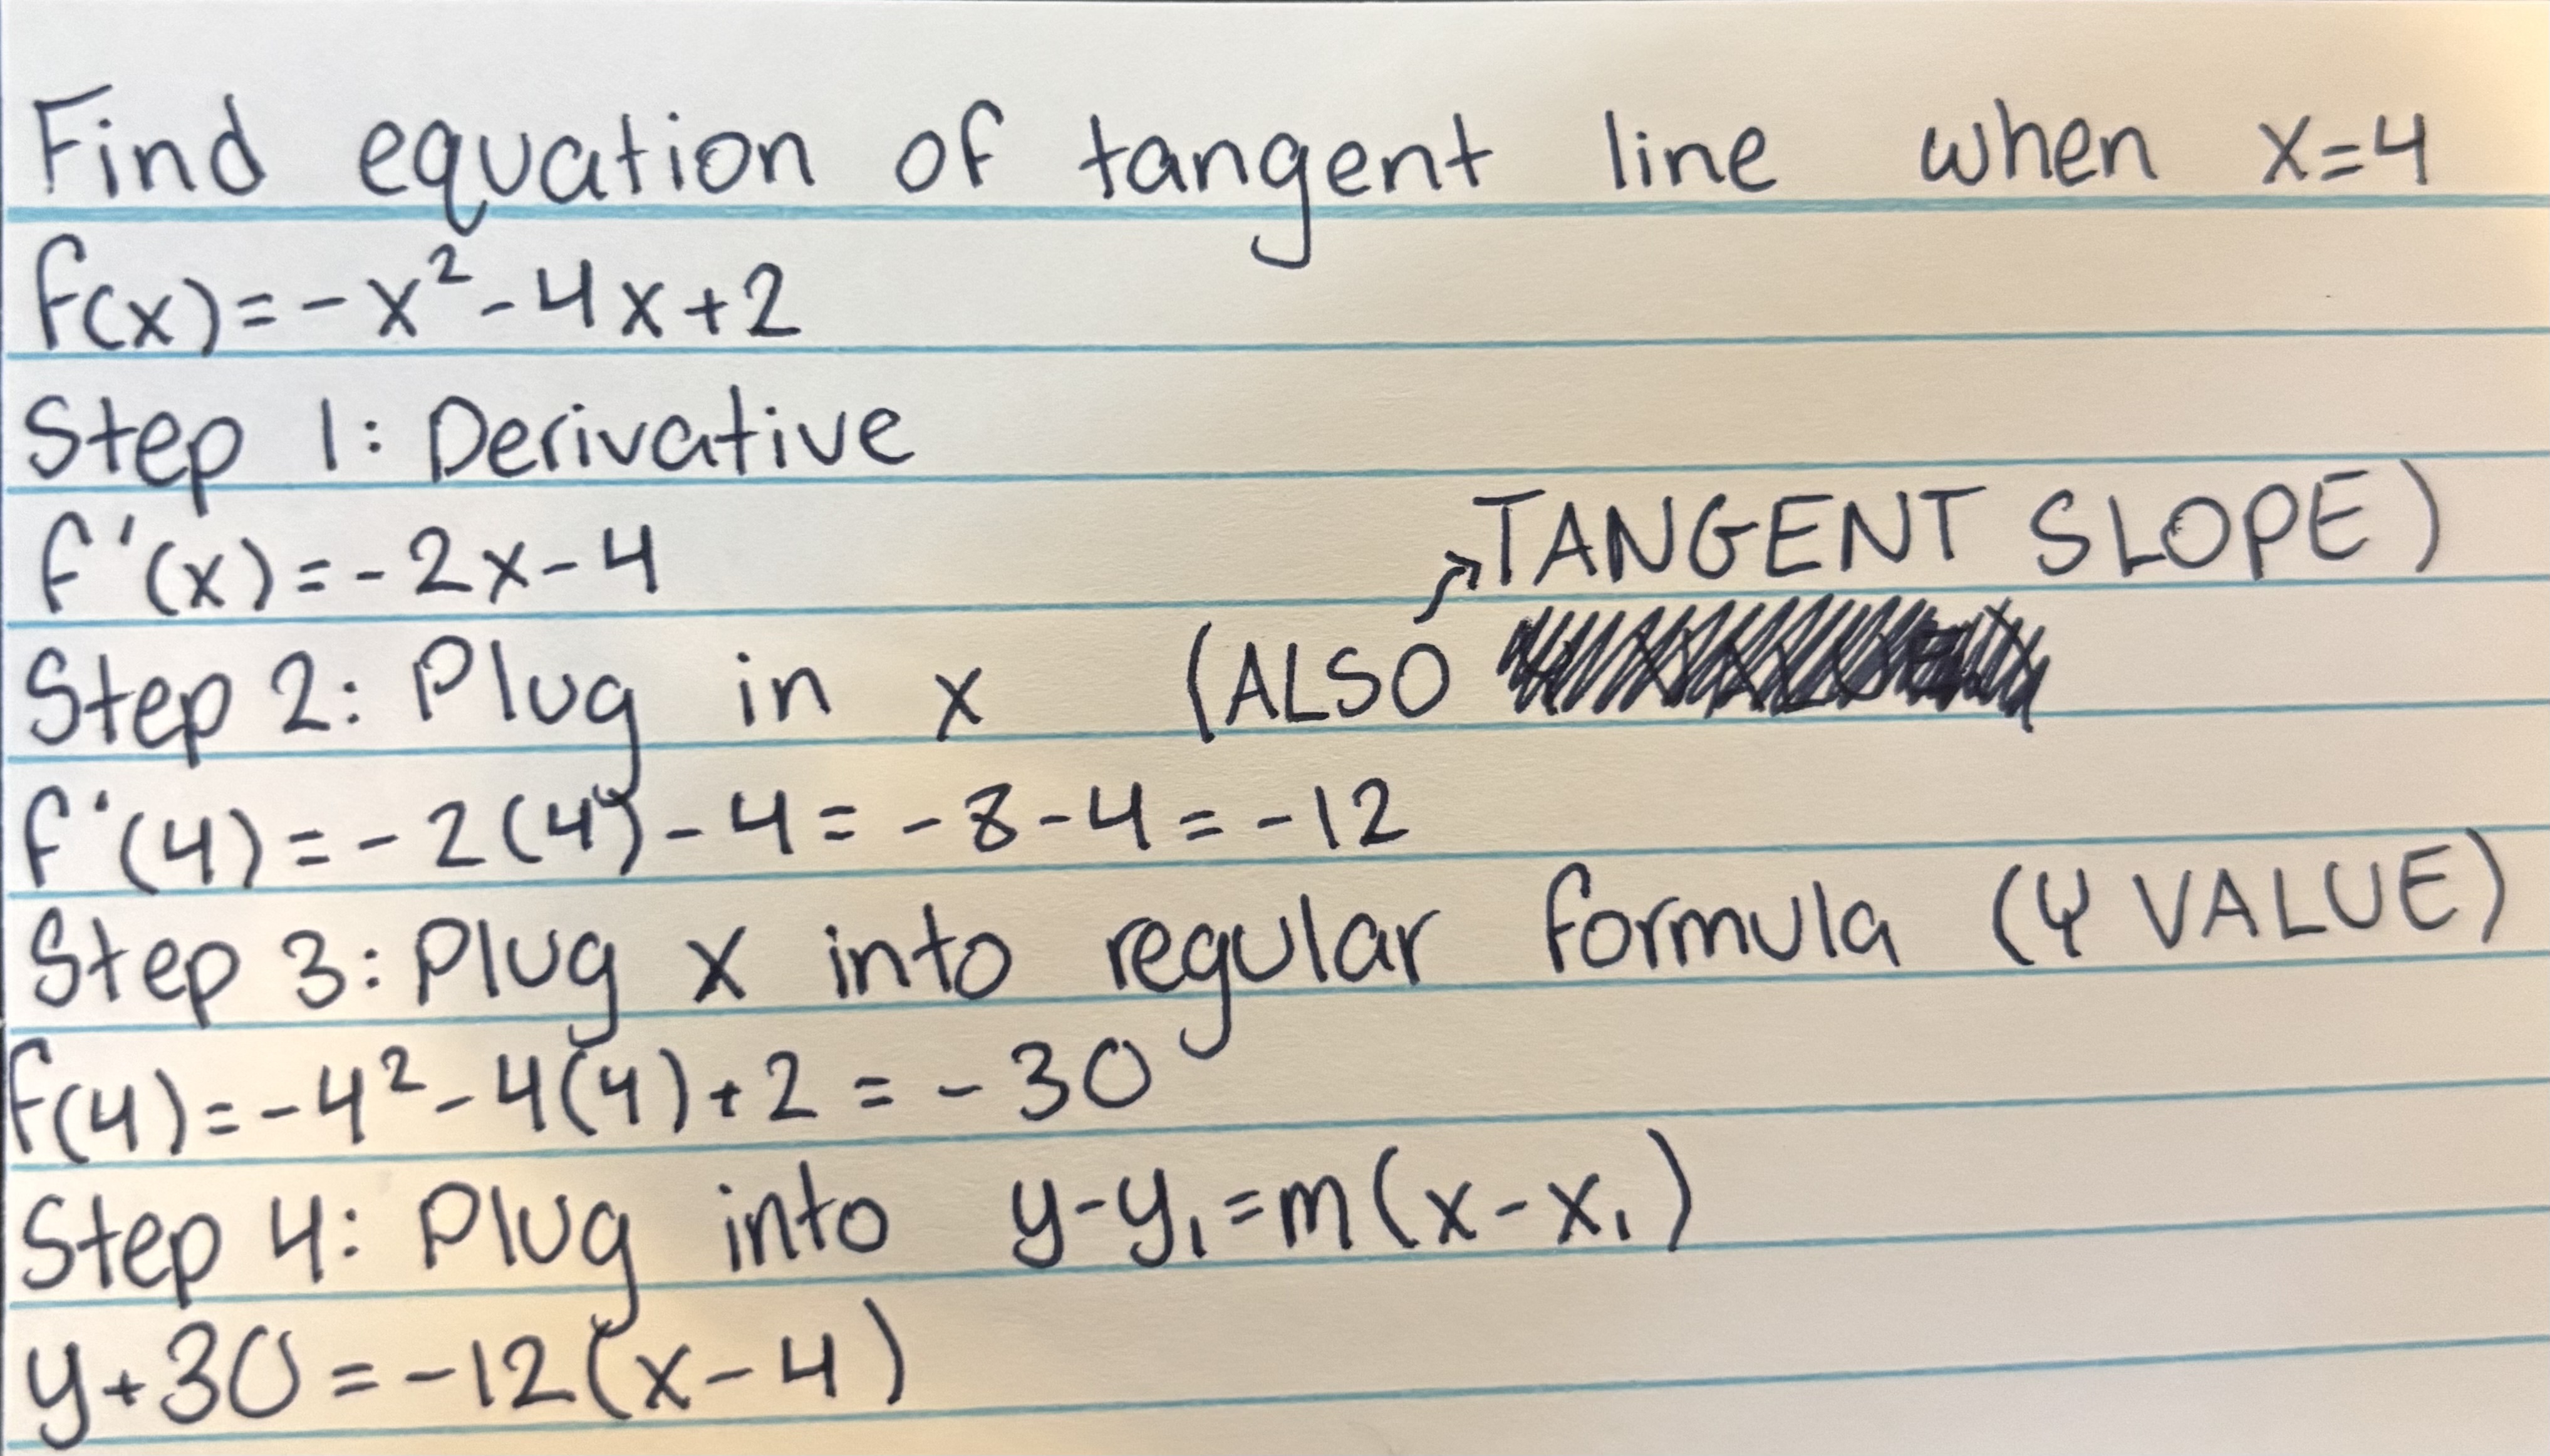 Find equation of tangent line when x=4
f(x)=-x²-4x+2
Step 1: Derivative
f'(x)=-2x-4
TANGENT SLOPE)
Step 2: Plug in x (ALSO
f'(4)=-2(4)-4=-8-4=-12
Step 3: Plug x into regular formula (Y VALUE)
f(4)=-4²-4(4)+2=-30
Step 4: Plug into y-y₁=m(x-x₁)
y+30=-12(x-4)